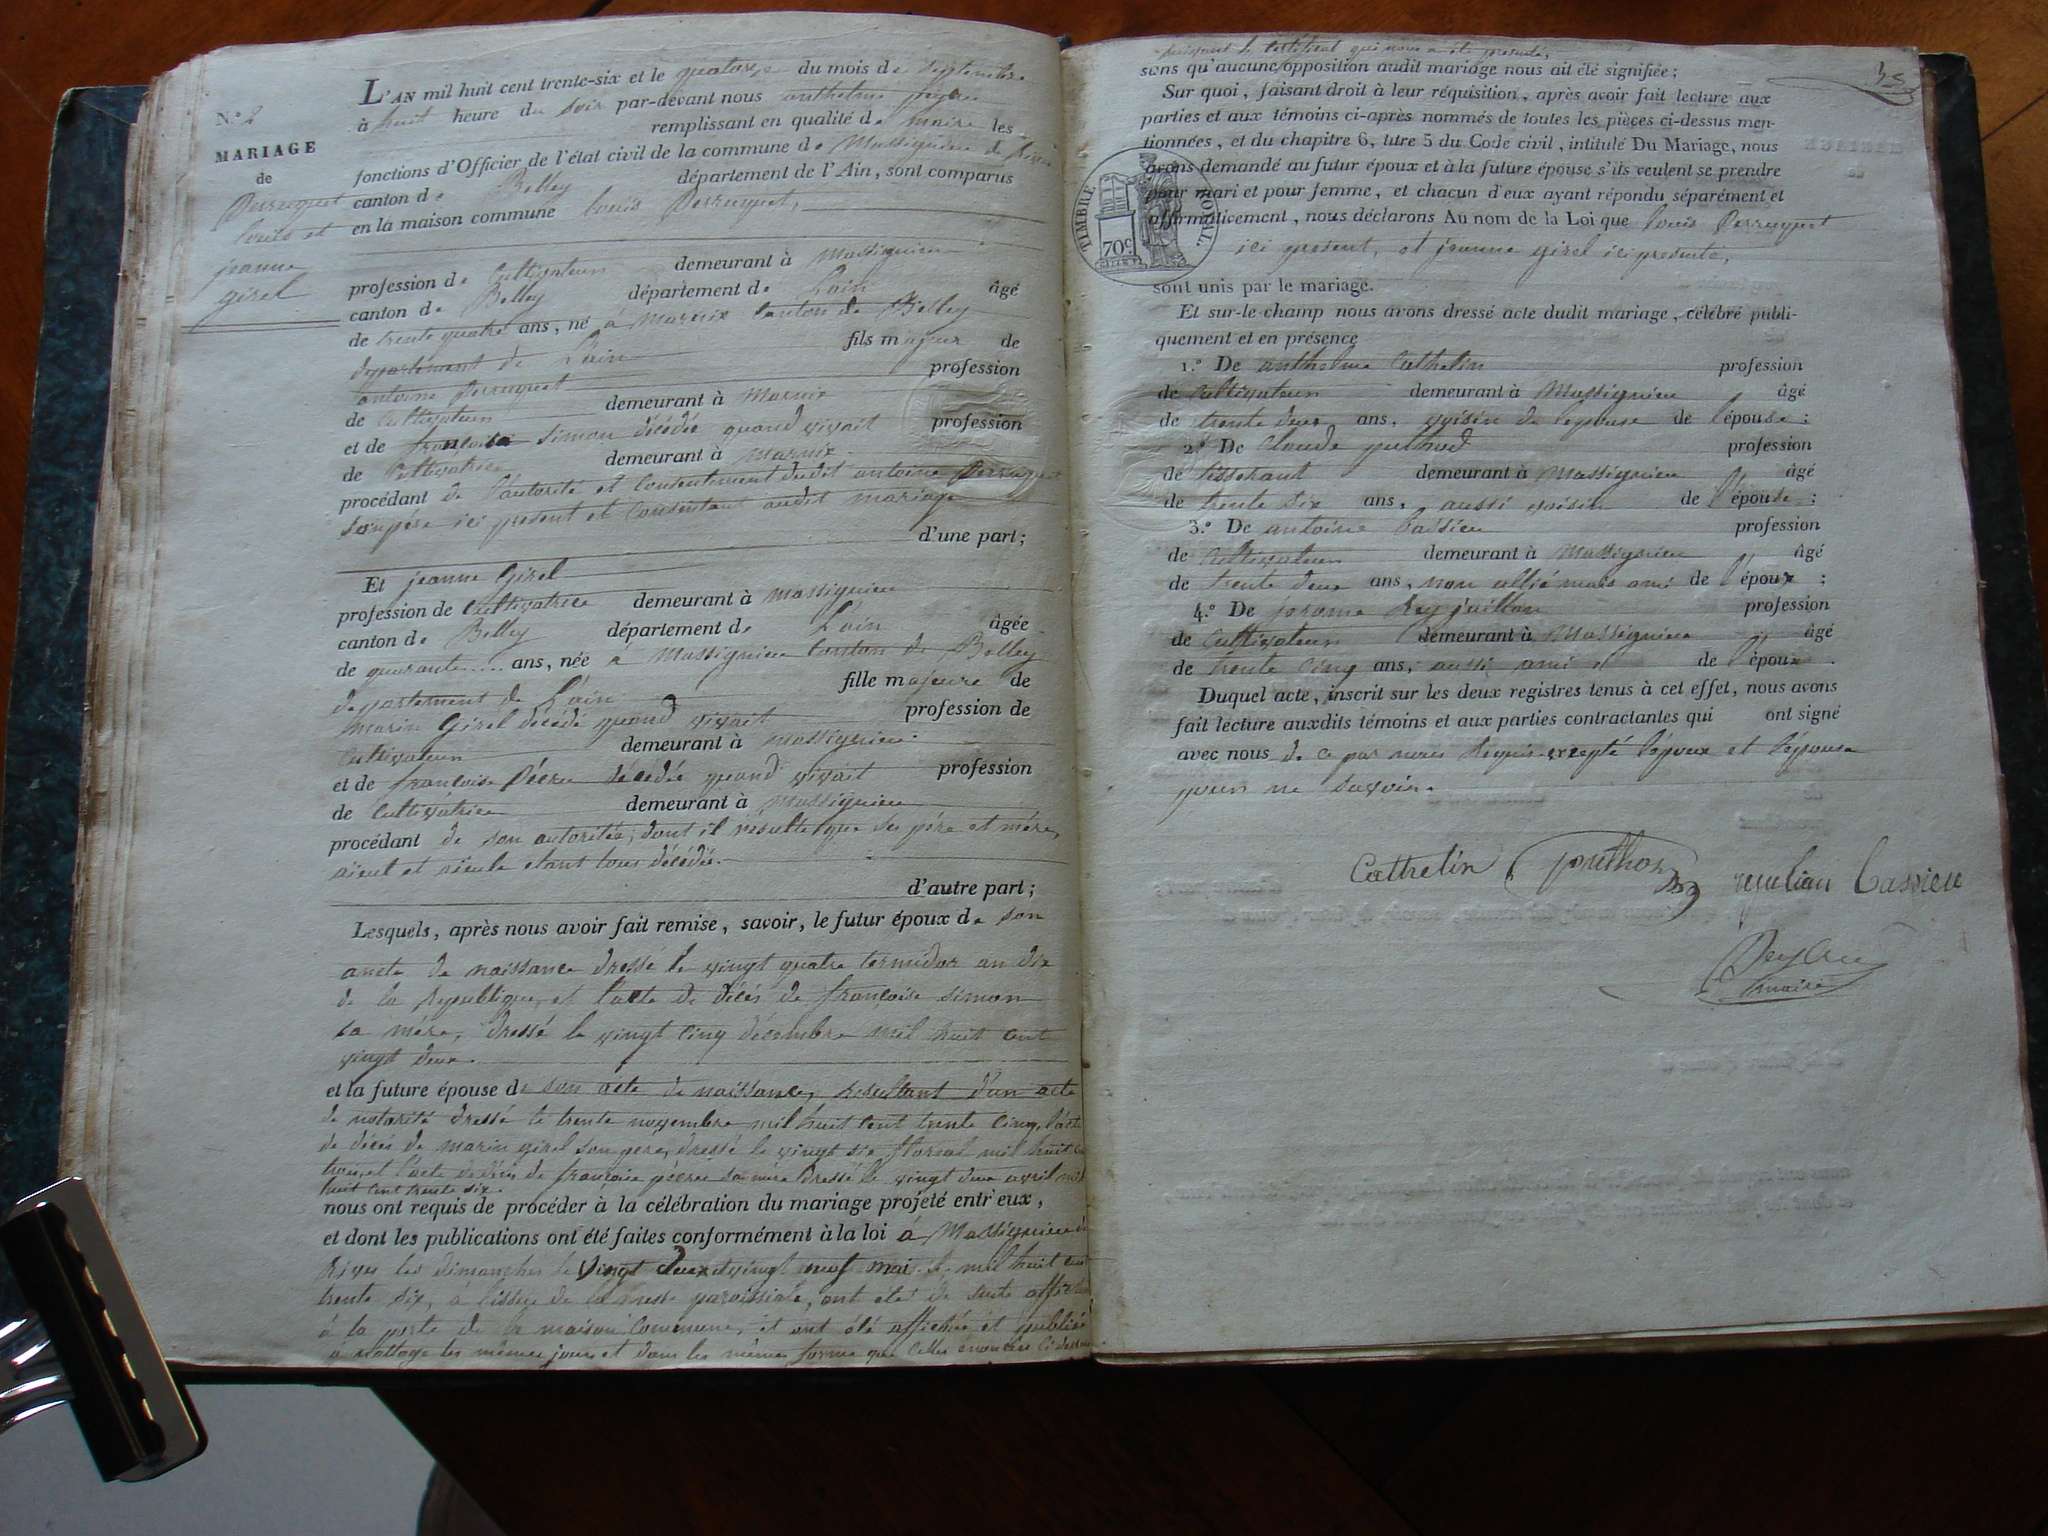 N.º 2
MARIAGE
de
Perruquet
louis et
jeanne
girel
L'AN mil huit cent trente-six et le quatorze du mois de septembre
à huit heure du soir par-devant nous anthelme
remplissant en qualité de maire les
fonctions d'Officier de l'état civil de la commune de Massignieu de Rives
canton de Belley département de l'Ain, sont comparus
en la maison commune louis Perruquet,
profession de Cultivateur demeurant à Massignieu
canton de Belley département de Lain âgé
de trente quatre ans, né à Marnix Canton de Belley
departement de Lain fils majeur de
antoine Perruquet profession
de Cultivateur demeurant à Marnix
et de françoise simon décédée quand vivait profession
de Cultivatrice demeurant à Marnix
procédant de l'autorité et Consentement dudit antoine Perruquet
son père ici present et Consentant audit mariage
d'une part;
Et jeanne Girel
profession de Cultivatrice demeurant à Massignieu
canton de Belley département de Lain âgée
de quarante .... ans, née à Massignieu Canton de Belley
departement de Lain fille majeure de
marin Girel décédé quand vivait profession de
Cultivateur demeurant à Massignieu
et de françoise Pécru décédée quand vivait profession
de Cultivatrice demeurant à Massignieu
procédant de son autoritée, dont il résulte que ses père et mère,
aïeul et aïeule etant tous décédés.
d'autre part;
Lesquels, après nous avoir fait remise, savoir, le futur époux de son
acte de naissance dressé le vingt quatre termidor an dix
de la Republique, et l'acte de décés de françoise simon
sa mére, dressé le vingt cinq décembre mil huit cent
vingt deux.
et la future épouse de son acte de naissance, resultant d'un acte
de notorité dressé le trente novembre mil huit cent trente cinq, l'acte
de décés de marin girel son pere, dressé le vingt six floreal mil huit cent
trois, et l'acte de décés de françoise pécru sa mére dressé le vingt deux avril mil
huit cent trente six.
nous ont requis de procéder à la célébration du mariage projeté entr'eux,
et dont les publications ont été faites conformément à la loi à Massignieu de
Rives les dimanches le vingt deux et vingt neuf mai mil huit cent
trente six, à l'issue de la messe paroissiale, ont été de suite affichés
à la porte de la maison Commune, et ont été affichée et publiée
les mêmes jours et dans les mêmes forme que Celles enoncées ci dessus
suivant le Certificat qui nous a été presenté,
35
sans qu'aucune opposition audit mariage nous ait été signifiée;
Sur quoi, faisant droit à leur réquisition, après avoir fait lecture aux
parties et aux témoins ci-après nommés de toutes les pièces ci-dessus men-
tionnées, et du chapitre 6, titre 5 du Code civil, intitulé Du Mariage, nous
avons demandé au futur époux et à la future épouse s'ils veulent se prendre
pour mari et pour femme, et chacun d'eux ayant répondu séparément et
affirmativement, nous déclarons Au nom de la Loi que louis Perruquet
ici present, et jeanne girel ici presente,
TIMBRE ROYAL.
70c
sont unis par le mariage.
Et sur-le-champ nous avons dressé acte dudit mariage, célébré publi-
quement et en présence
1.º De anthelme Cathelin profession
de Cultivateur demeurant à Massignieu âgé
de trente deux ans, voisin de lepouse de l'épouse;
2.º De Claude puthod profession
de tisserant demeurant à Massignieu âgé
de trente six ans, aussi voisin de l'épouse;
3.º De antoine Cassieu profession
de Cultivateur demeurant à Massignieu âgé
de trente deux ans, non allié mais ami de l'époux;
4.º De jerome Rey juillan profession
de Cultivateur demeurant à Massignieu âgé
de trente cinq ans, aussi ami de l'époux.
Duquel acte, inscrit sur les deux registres tenus à cet effet, nous avons
fait lecture auxdits témoins et aux parties contractantes qui ont signé
avec nous de ce par nous Requis excepté l'époux et l'épouse
pour ne savoir.
Cathelin puthod Cassieu
maire